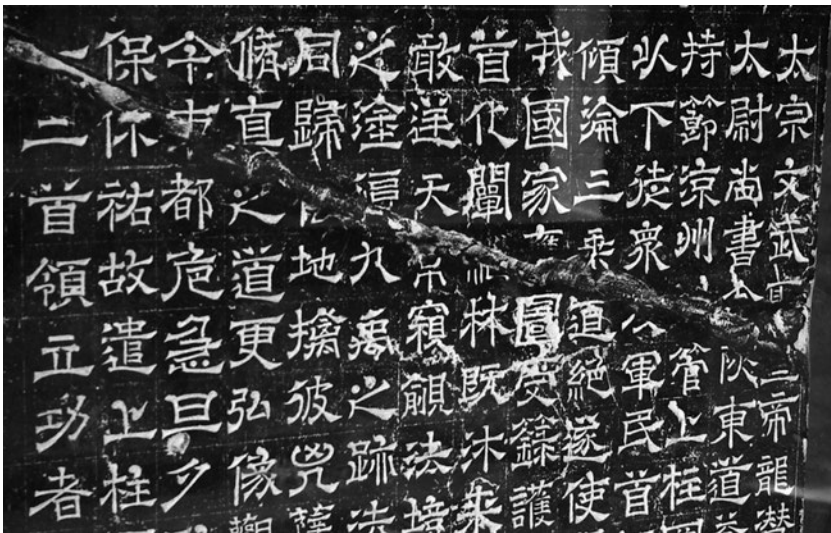 太宗文武帝龍潛
太尉尚書令陝東道益
持節涼州管上柱國
以下徒衆軍民首
傾淪三乘道絕遂使
我國家膺圖受籙護
首化闡林既沐來
敢逆天常窺覦法境
之塗九禹之跡法
同歸地擒彼兇孽
脩直之道更弘像觀
今東都危急旦夕
保休祐故遣上柱
一二首領立功者